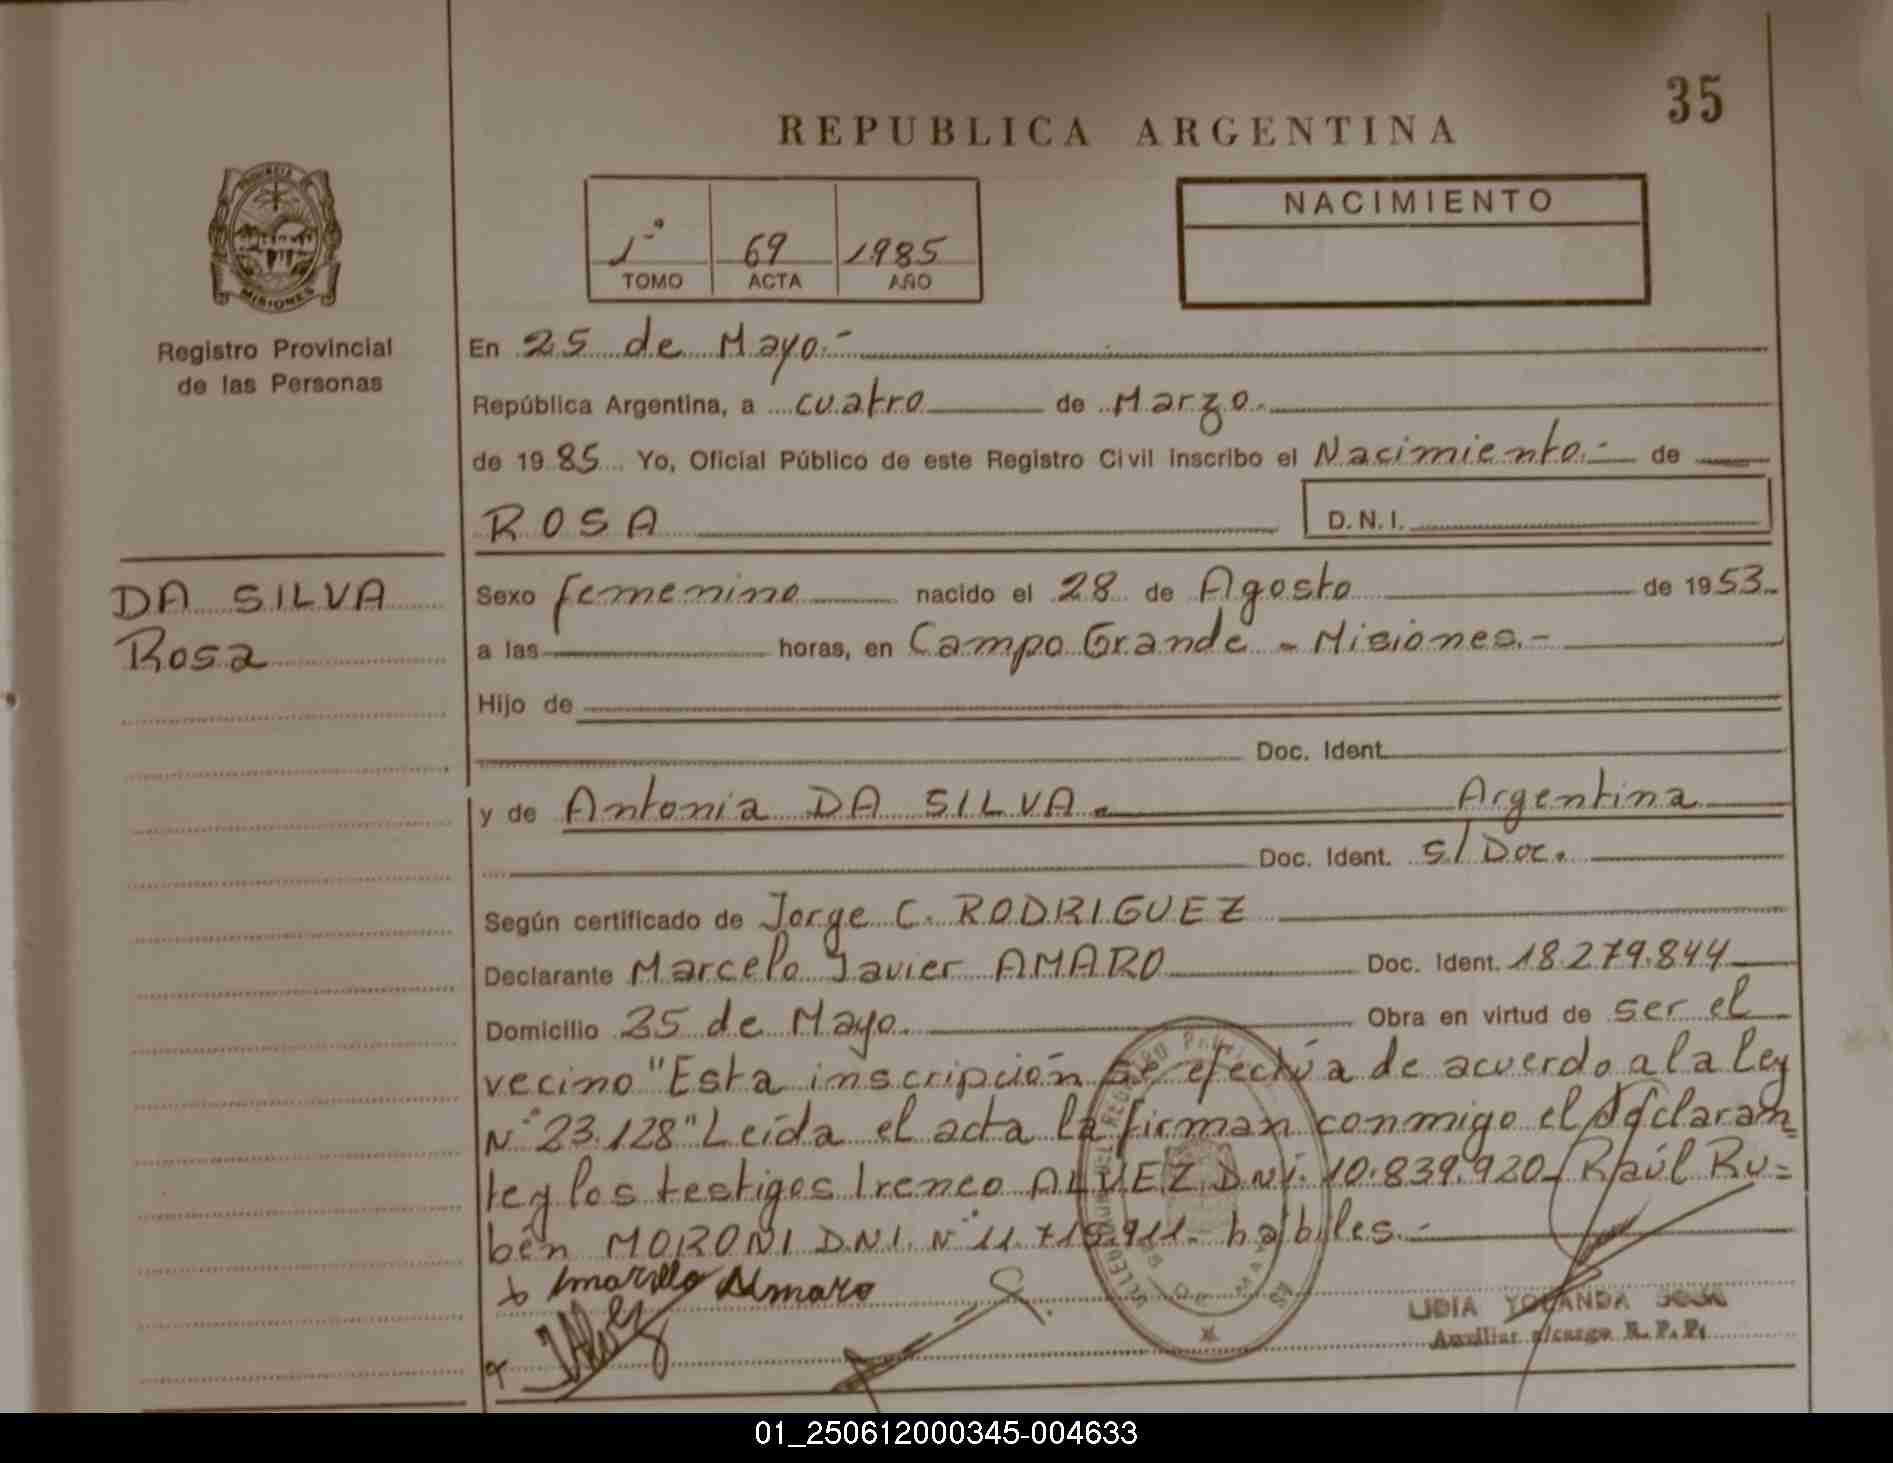 35
REPUBLICA ARGENTINA
PROVINCIA DE
MISIONES
Registro Provincial
de las Personas
1º
69
1985
TOMO
ACTA
AÑO
NACIMIENTO
En 25 de Mayo.-
República Argentina, a cuatro de Marzo.
de 1985 Yo, Oficial Público de este Registro Civil inscribo el Nacimiento.- de
ROSA
D.N.I.
DA SILVA
Rosa
Sexo femenino nacido el 28 de Agosto de 1953.
a las horas, en Campo Grande - Misiones.-
Hijo de
Doc. Ident.
y de Antonia DA SILVA. Argentina
Doc. Ident. s/Doc.
Según certificado de Jorge C. RODRIGUEZ
Declarante Marcelo Javier AMARO Doc. Ident. 18.279.844
Domicilio 25 de Mayo. Obra en virtud de ser el
vecino "Esta inscripción se efectúa de acuerdo a la Ley
Nº 23.128" Leída el acta la firman conmigo el declaran=
te y los testigos Ireneo ALVEZ DNI. 10.839.920- Raúl Ru=
bén MORONI D.N.I. Nº 11.715.911. hábiles.-
Amaro
LIDIA YOLANDA
Auxiliar a/cargo R. P. P.
01_250612000345-004633